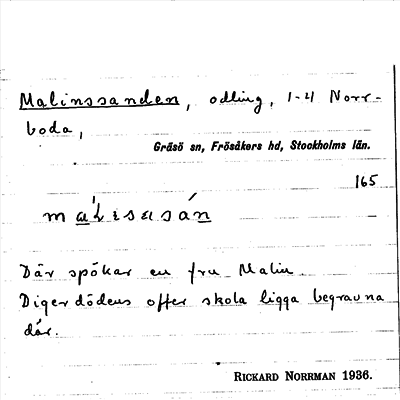 Malinssanden, odling, 1-4 Norr-
boda,
Gräsö sn, Frösåkers hd, Stockholms län.
165
Där spökar en fru Malin
Digerdödens offer skola ligga begravna
där.
RICKARD NORRMAN 1936.